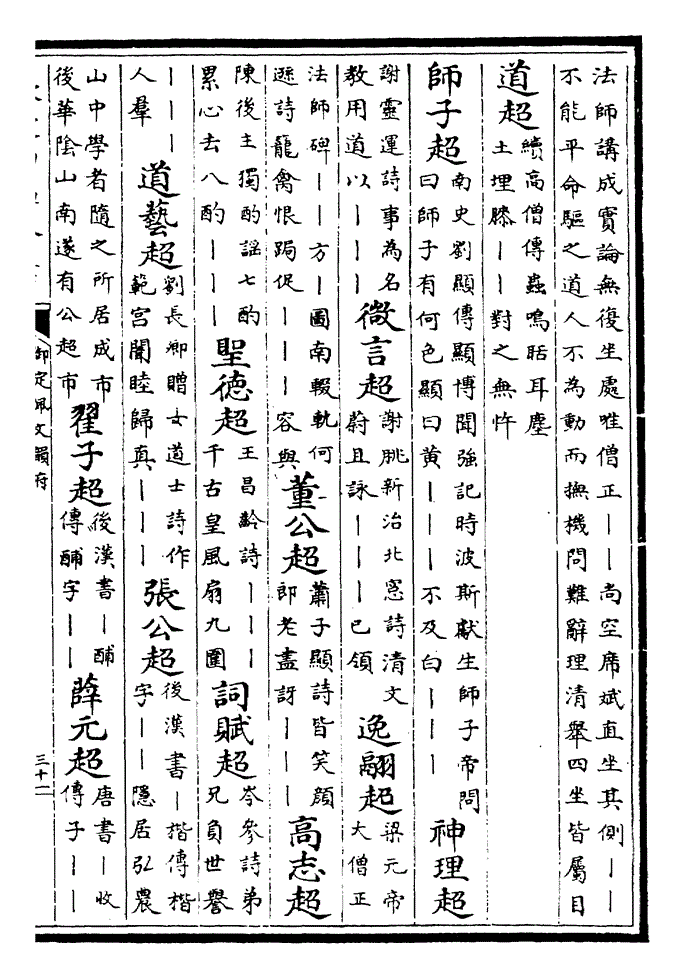 法師講成實論無復坐處唯僧正｜｜尚空席斌直坐其側｜｜
不能平命驅之道人不為動而撫機問難辭理清舉四坐皆屬目
道超 續高僧傳蟲鳴聒耳塵
土埋膝｜｜對之無忤
師子超 南史劉顯傳顯博聞強記時波斯獻生師子帝問
曰師子有何色顯曰黃｜｜｜不及白｜｜｜
神理超
謝靈運詩事為名
教用道以｜｜｜
微言超 謝朓新治北窓詩清文
蔚且詠｜｜｜已領
逸翮超 梁元帝
大僧正
法師碑｜｜方｜圖南輟軌何
遜詩龍禽恨跼促｜｜｜容與
董公超 蕭子顯詩皆笑顔
郎老盡訝｜｜｜
高志超
陳後主獨酌謡七酌
累心去八酌｜｜｜
聖德超 王昌齡詩｜｜｜
千古皇風扇九圍
詞賦超 岑參詩弟
兄負世譽
｜｜｜
人羣
道藝超 劉長卿贈女道士詩作
範宮闈睦歸真｜｜｜
張公超 後漢書｜楷傳楷
字｜｜隱居弘農
山中學者隨之所居成市
後華陰山南遂有公超市
翟子超 後漢書｜酺
傳酺字｜｜
薛元超 唐書｜收
傳子｜｜
御定佩文韻府
三十二